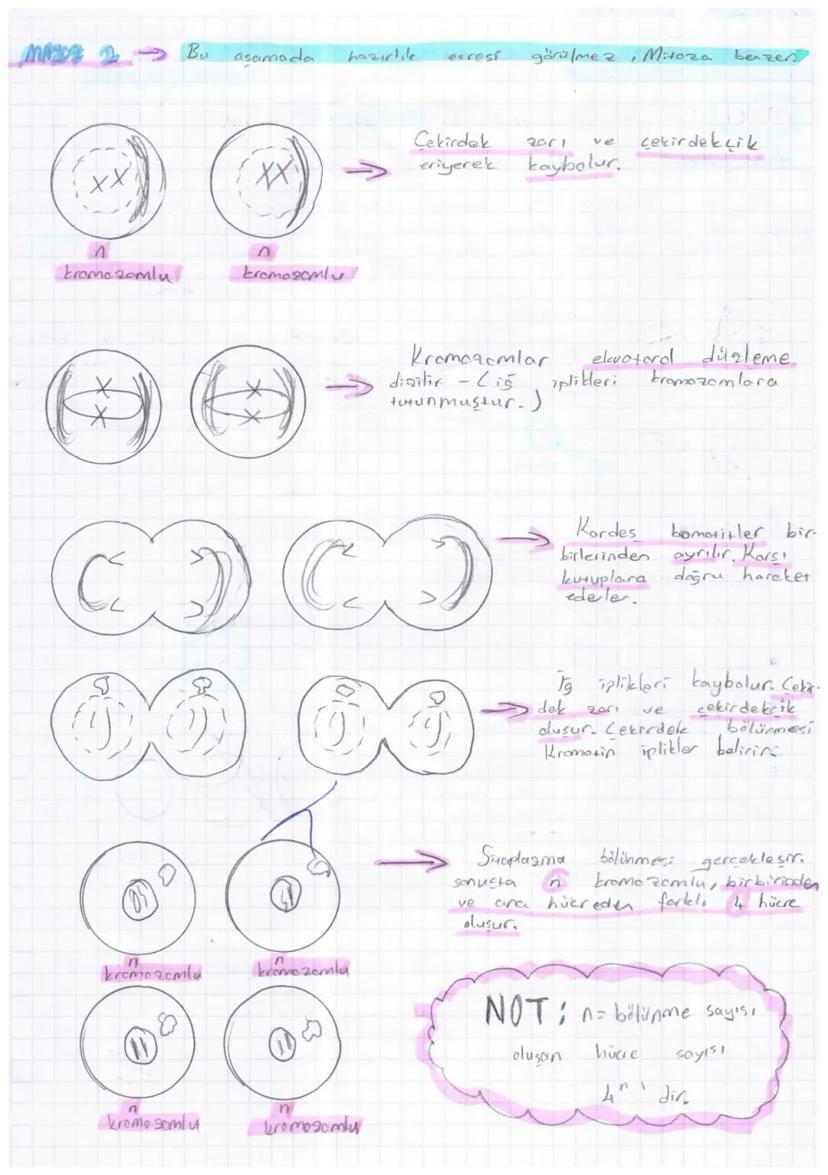 MAYOZ 2 → Bu aşamada hazırlık evresi görülmez, Mitoza benzer.
Çekirdek zarı ve çekirdekçik
eriyerek kaybolur.
n
kromozomlu
n
kromozomlu
Kromozomlar ekvatoral düzleme
dizilir - (iğ iplikleri kromozomlara
tutunmuştur.)
Kardeş komatitler bir-
birlerinden ayrılır. Karşı
kutuplara doğru hareket
ederler.
İğ iplikleri kaybolur. Çekir-
dek zarı ve çekirdekçik
oluşur. Çekirdek bölünmesi
Kromatin iplikler belirir.
Sitoplazma bölünmesi gerçekleşir.
sonuçta n kromozomlu, birbirinden
ve ana hücreden farklı 4 hücre
oluşur.
n
kromozomlu
n
kromozomlu
n
kromozomlu
n
kromozomlu
NOT: n = bölünme sayısı
oluşan hücre sayısı
4ⁿ ' dir.